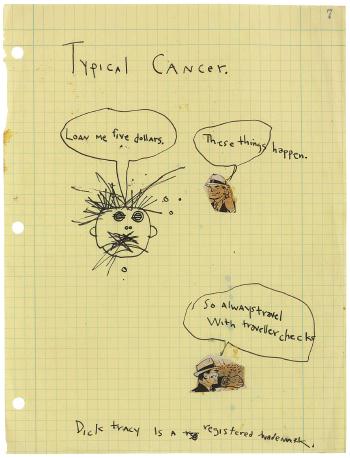 7
Typical Cancer.
Loan me five dollars.
These things happen.
So always travel
With traveller checks
Dick tracy Is a reg registered trademark.